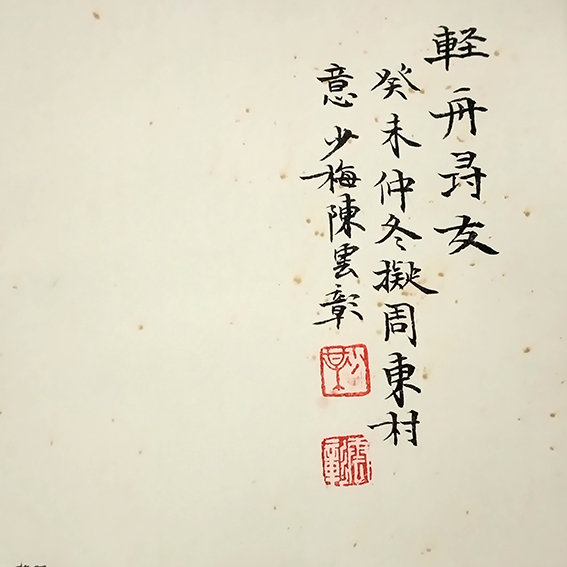 軽舟尋友
癸未仲冬擬周東村
意少梅陳雲彰
少某
雲彰